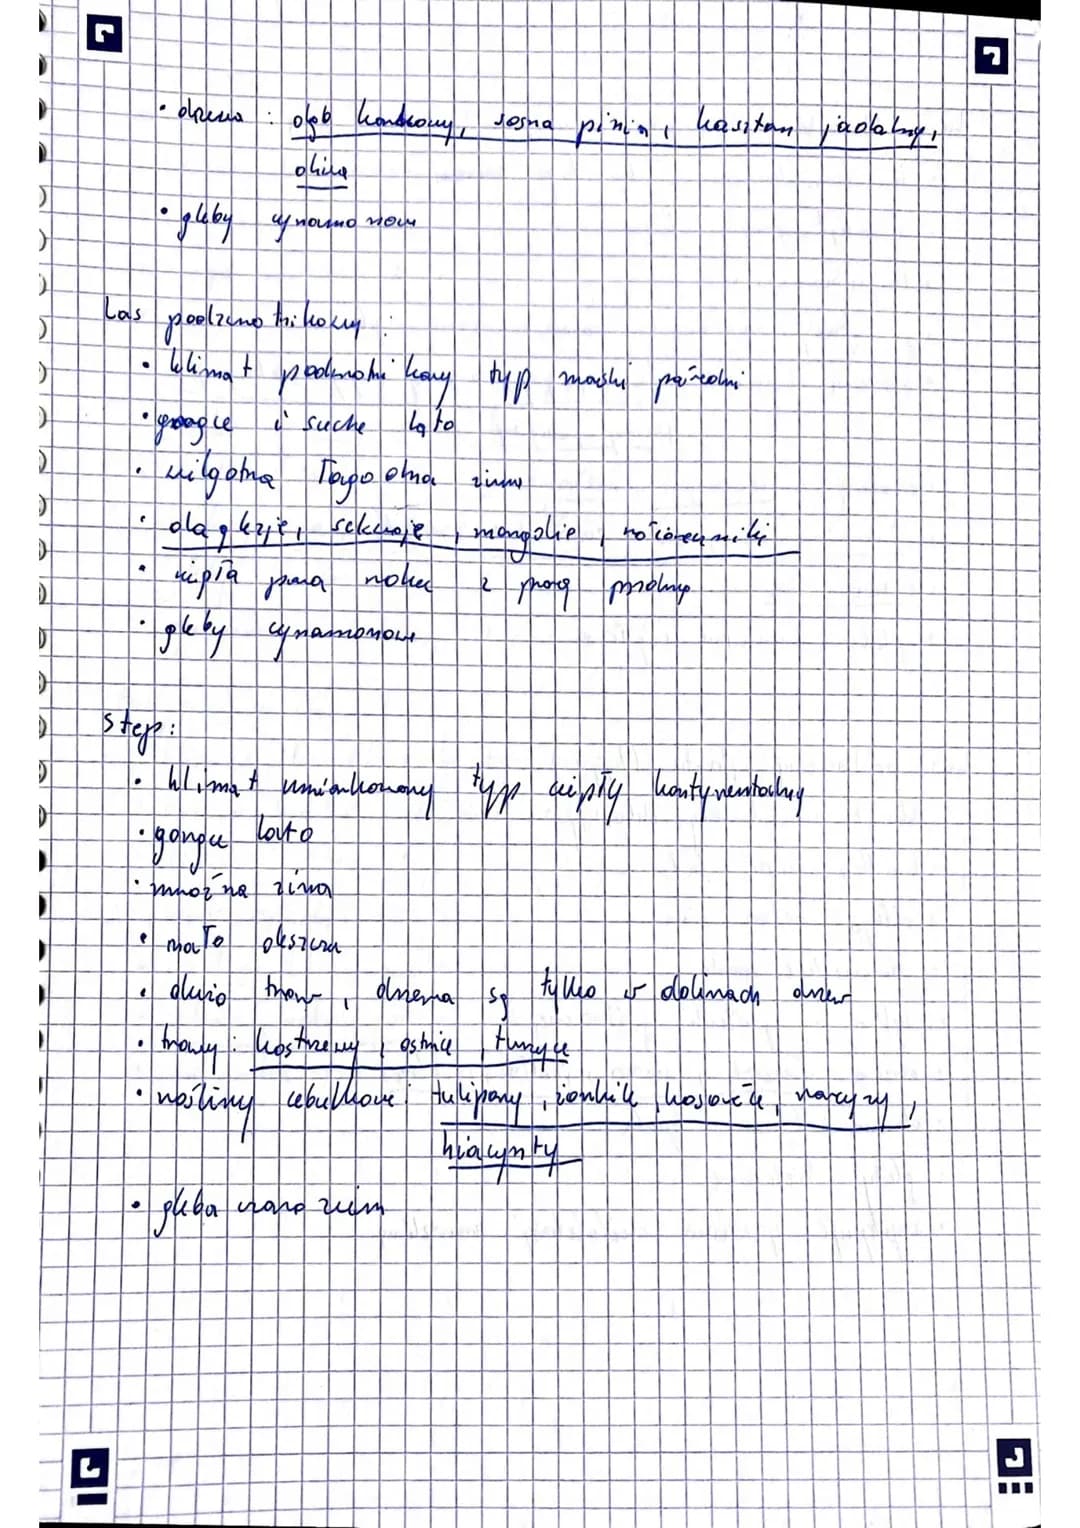 • drzewa : dąb korkowy, sosna pinia, kasztan jadalny,
oliwa
• gleby cynamonowe
Las podzwrotnikowy :
• klimat podzwrotnikowy typ morski pośredni
• gorące i suche lato
• wilgotna łagodna zima
• daglezje, sekwoje, mongolie, różoreczniki
• ciepła pora roku z porą
• gleby cynamonowe
Step:
• klimat umiarkowany typ ciepły kontynentalny
• gorące lato
• mroźna zima
• mało deszczu
• dużo traw, drzewa są tylko w dolinach drzew
• trawy : kostrzewy, ostnice, turzyce
• rośliny cebulkowe: tulipany, żonkile, kosaćce, narcyzy,
hiacynty
• gleba czarnoziem